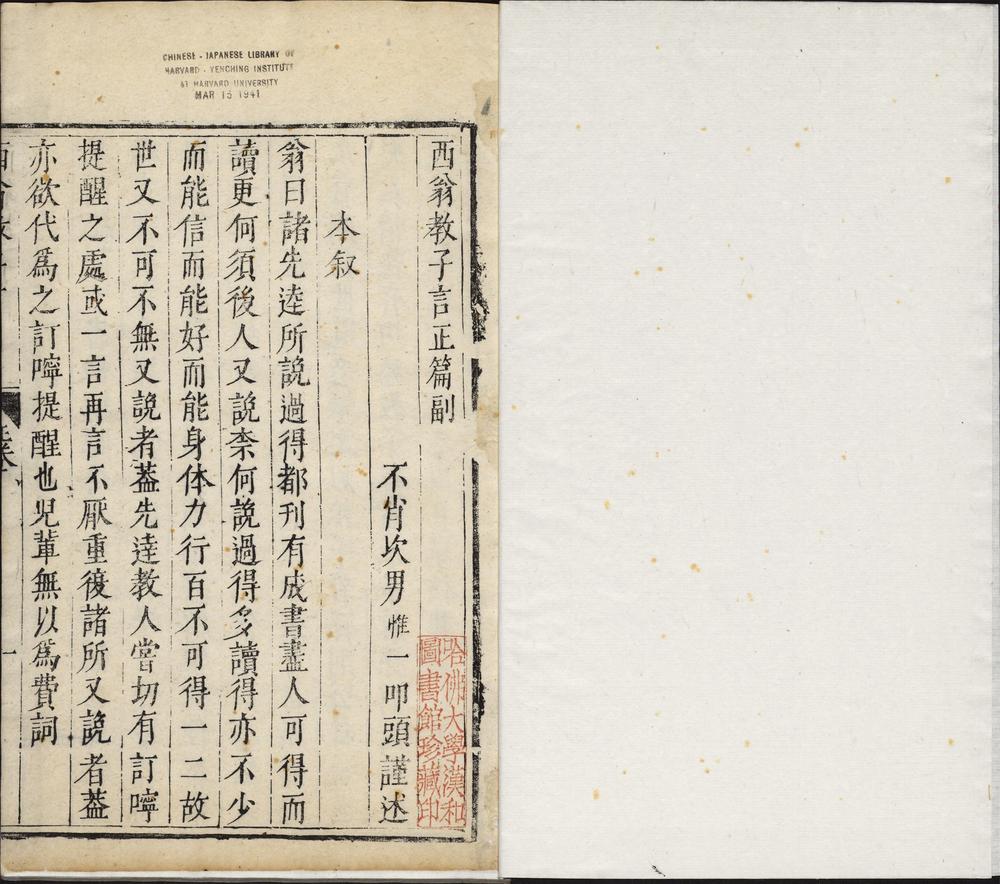 CHINESE - JAPANESE LIBRARY OF
HARVARD - YENCHING INSTITUTE
AT HARVARD UNIVERSITY
MAR 15 1941
西翁教子言正篇副
不肖坎男惟一叩頭謹述
本叙
翁曰諸先逹所説過得都刊有成書盡人可得而
讀更何須後人又説柰何說過得多讀得亦不少
而能信而能好而能身体力行百不可得一二故
世又不可不無又說者葢先逹教人嘗切有訂嚀
提醒之處或一言再言不厭重復諸所又說者葢
亦欲代爲之訂嚀提醒也児軰無以爲費詞
哈佛大學漢和
圖書館珍藏印
一